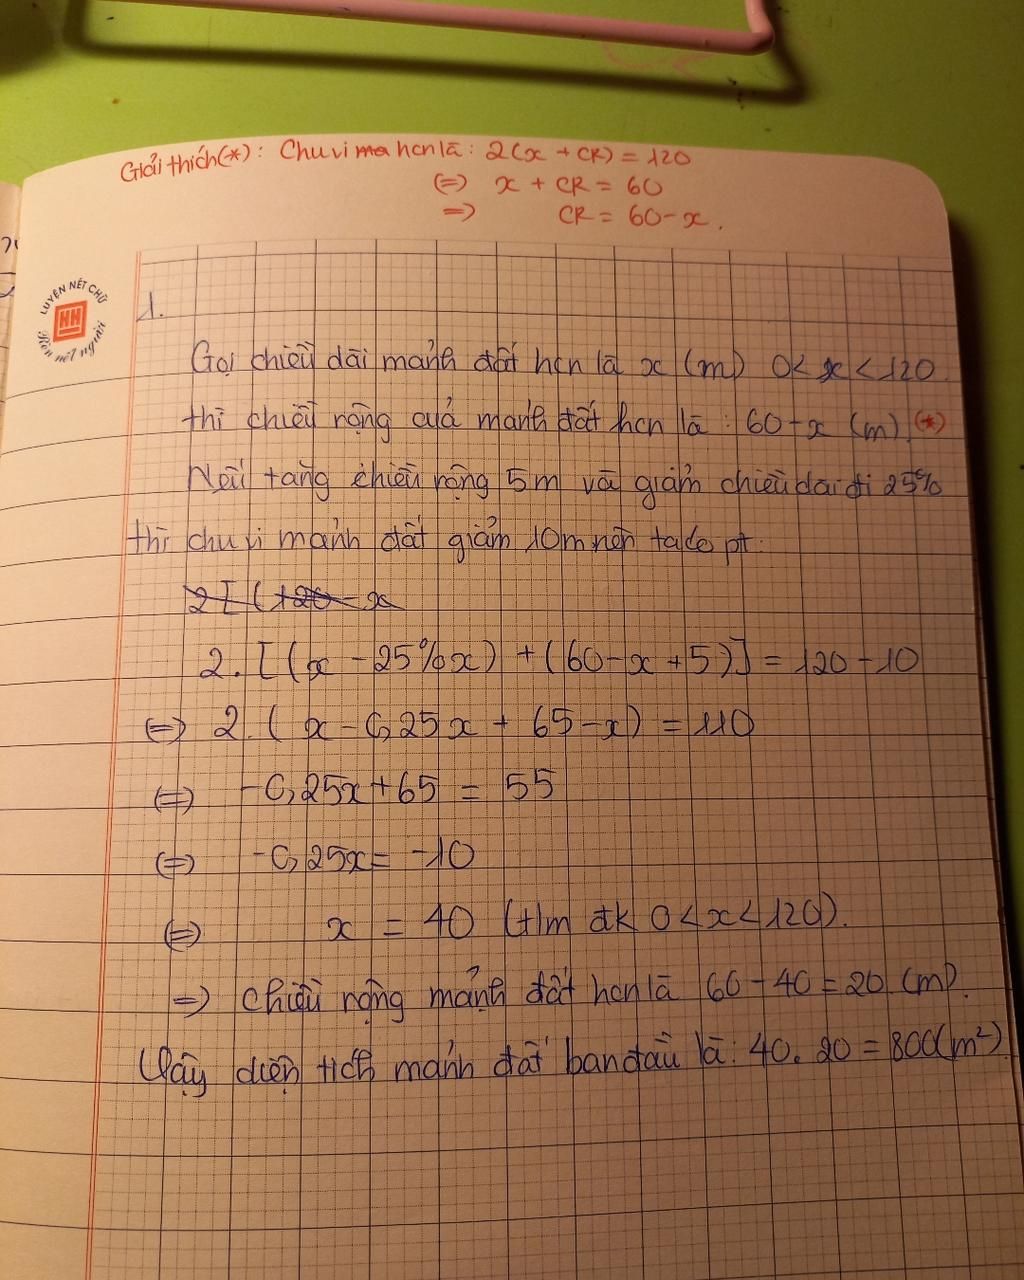 Giải thích(*): Chu vi hcn là: 2(x + CR) = 120
(=) x + CR = 60
=> CR = 60 - x.
LUYỆN NÉT CHỮ
HH
Rèn nết người
1.
Gọi chiều dài mảnh đất hcn là x (m) 0 < x < 120
thì chiều rộng của mảnh đất hcn là : 60 - x (m) (*)
Nếu tăng chiều rộng 5m và giảm chiều dài đi 25%
thì chu vi mảnh đất giảm 10m nên ta có pt:
2 [ (120 - x
2. [(x - 25%x) + (60 - x + 5)] = 120 - 10
(=) 2. ( x - 0,25x + 65 - x) = 110
(=) -0,25x + 65 = 55
(=) -0,25x = -10
(=) x = 40 (t/m đk 0 < x < 120).
=> Chiều rộng mảnh đất hcn là 60 - 40 = 20 (m).
Vậy diện tích mảnh đất ban đầu là: 40. 20 = 800(m²)